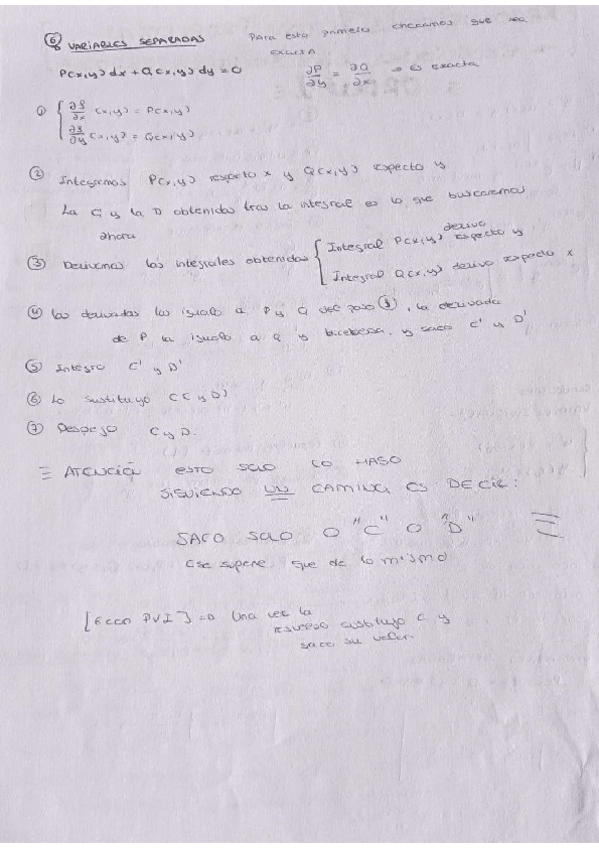 ⑥ VARIABLES SEPARADAS Para esto primero checamos que sea
exacta
P(x,y)dx + Q(x,y)dy = 0 ∂P/∂y = ∂Q/∂x → es exacta
① { ∂f/∂x (x,y) = P(x,y)
∂f/∂y (x,y) = Q(x,y)
② Integramos P(x,y) respecto x y Q(x,y) respecto y
La C y la D obtenidas tras la integral es lo que buscaremos
ahora
③ Derivamos las integrales obtenidas { Integral P(x,y) derivo respecto y
Integral Q(x,y) derivo respecto x
④ Las derivadas las igualo a P y Q del paso ①, la derivada
de P la igualo a Q y bicebersa, y saco C' y D'
⑤ Integro C' y D'
⑥ Lo sustituyo C(y D)
⑦ Despejo C y D.
≡ ATENCIÓN ESTO SOLO LO HASO
SIGUIENDO UN CAMINO, ES DECIR:
SACO SOLO O "C" O "D" ≡
(se supone que da lo mismo
[6 con PVI] → Una vez la
resuelvo sustituyo C y
saco su valor.